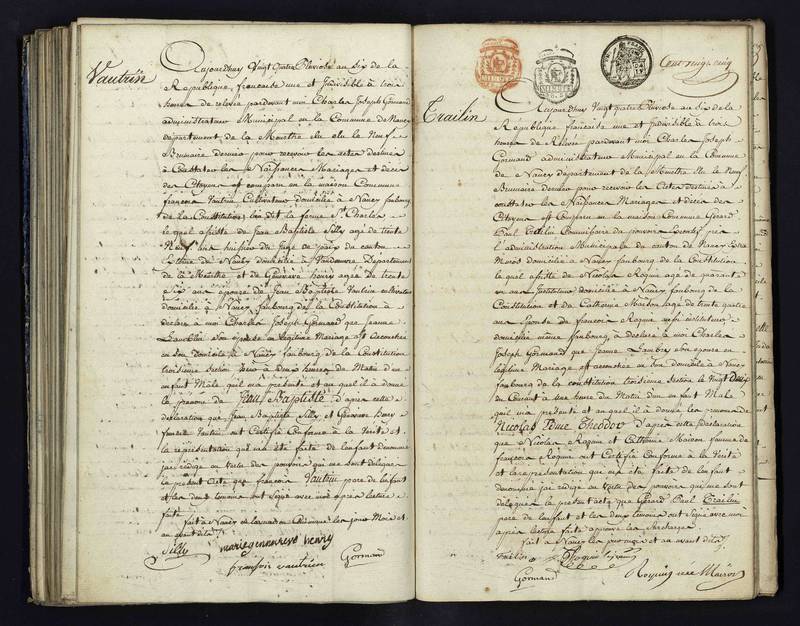 Vautrin
Aujourdhuy Vingt quatre Pluviose an Six de la
République, française une et Indivisible à trois
heures de relevée pardevant moi Charles Joseph Gormand
administrateur Municipal en la Commune de Nancy
département de la Meurthe élu le Neuf
Brumaire dernier pour recevoir les actes destinés
à Constater les Naissances Mariages et décès
des Citoyens est comparu en la maison Commune
françois Vautrin Cultivateur domicilié à Nancy faubourg
de la Constitution, lieu dit la ferme St Charles
lequel assisté de Jean Baptiste Silly agé de trente
Neuf ans huissier du Juge de paix du canton
de Nancy domicilié à Vandoeuvre Département
de la Meurthe et de Genevieve henry agée de trente
Six ans épouse de Jean Baptiste Vautrin cultivateur
domiciliée à Nancy faubourg de la Constitution à
déclaré à moi Charles Joseph Gormand que Jeanne
son épouse en légitime Mariage est accouchée
en son domicile à Nancy faubourg de la Constitution
troisieme Section hier à deux heures du Matin d'un
enfant Mâle qu'il m'a présenté et auquel il a donné
le prénom de Jean Baptiste d'après cette
déclaration que Jean Baptiste Silly et Genevieve henry
femme Vautrin ont Certifié Conforme à la Vérité et
la représentation qui m'a été faite de l'enfant dénommé
j'ai rédigé en Vertu des pouvoirs qui me sont délégués
le présent acte que françois Vautrin pere de l'enfant
et les deux temoins ont Signé avec moi après lecture
faite
fait à Nancy en la maison Commune les jour Mois et
an avant dits
Silly marie genevieve henry
françois vautrin Gormand
Cent vingt cinq
Trailin
Aujourdhuy Vingt quatre Pluviose an Six de la
République française une et Indivisible à trois
heures de Relevée pardevant moi Charles Joseph
Gormand administrateur Municipal en la Commune
de Nancy département de la Meurthe élu le Neuf
Brumaire dernier pour recevoir les Actes destinés à
constater les Naissances Mariages et décès des
Citoyens est Comparu en la maison Commune Gerard
Paul Trailin Commissaire du pouvoir Exécutif près
l'administration Municipale du canton de Nancy Extra
Muros domicilié à Nancy faubourg de la Constitution
lequel assisté de Nicolas Roquin agé de quarante
un ans Instituteur domicilié à Nancy faubourg de la
Constitution et de Catherine Maison agée de trente quatre
ans Epouse de françois Roquin instituteur
domiciliée même faubourg, à déclaré à moi Charles
Joseph Gormand que Jeanne son épouse en
legitime Mariage est accouchée en son domicile à Nancy
faubourg de la constitution troisieme Section le Vingt deux
du Courant à une heure du Matin d'un enfant Mâle
qu'il m'a présenté et auquel il a donné les prénoms de
Nicolas Théodor d'après cette Déclaration
que Nicolas Roquin et Catherine Maison femme de
françois Roquin ont Certifié Conforme à la Vérité
et la représentation qui m'a été faite de l'enfant
dénommé j'ai rédigé en vertu des pouvoirs qui me sont
délégués le présent acte que Gérard Paul Trailin
pere de l'enfant et les deux temoins ont Signé avec moi
après lecture faite approuvé les Surcharges
fait à Nancy les jour mois et an avant dits
Trailin Roquin
Gormand Roquin née Maison